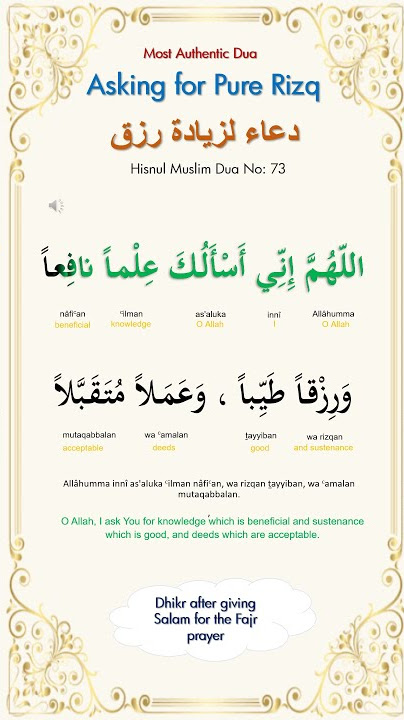 Most Authentic Dua
Asking for Pure Rizq
دعاء لزيادة رزق
Hisnul Muslim Dua No: 73
اللّهُمَّ إِنِّي أَسْأَلُكَ عِلْماً نافِعاً
nâfiʿan ʿilman as'aluka innî Allâhumma
beneficial knowledge O Allah I O Allah
وَرِزْقاً طَيِّباً ، وَعَمَلاً مُتَقَبَّلاً
mutaqabbalan wa ʿamalan ṯayyiban wa rizqan
acceptable deeds good and sustenance
Allâhumma innî as'aluka ʿilman nâfiʿan, wa rizqan ṯayyiban, wa ʿamalan
mutaqabbalan.
O Allah, I ask You for knowledge which is beneficial and sustenance
which is good, and deeds which are acceptable.
Dhikr after giving
Salam for the Fajr
prayer